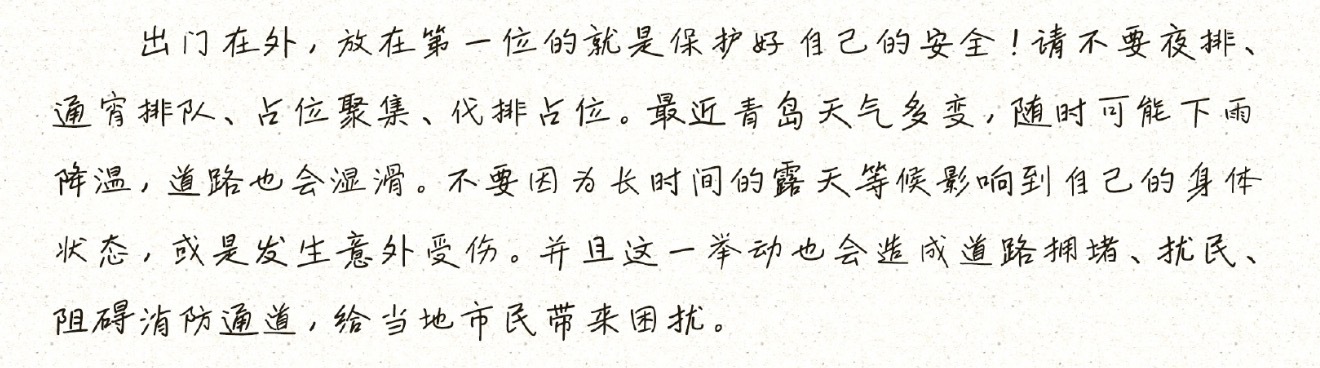 出门在外，放在第一位的就是保护好自己的安全！请不要夜排、
通宵排队、占位聚集、代排占位。最近青岛天气多变，随时可能下雨
降温，道路也会湿滑。不要因为长时间的露天等候影响到自己的身体
状态，或是发生意外受伤。并且这一举动也会造成道路拥堵、扰民、
阻碍消防通道，给当地市民带来困扰。